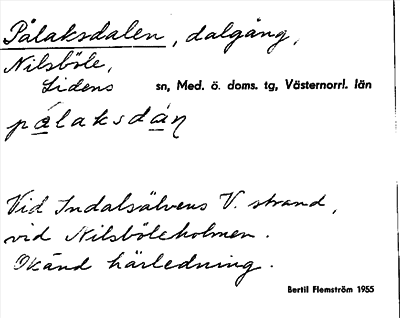 Pålaksdalen, dalgång,
Nilsböle,
Lidens sn, Med. ö. doms. tg, Västernorrl. län
pålaksdán
Vid Indalsälvens V. strand,
vid Nilsböleholmen.
Okänd härledning.
Bertil Flemström 1955